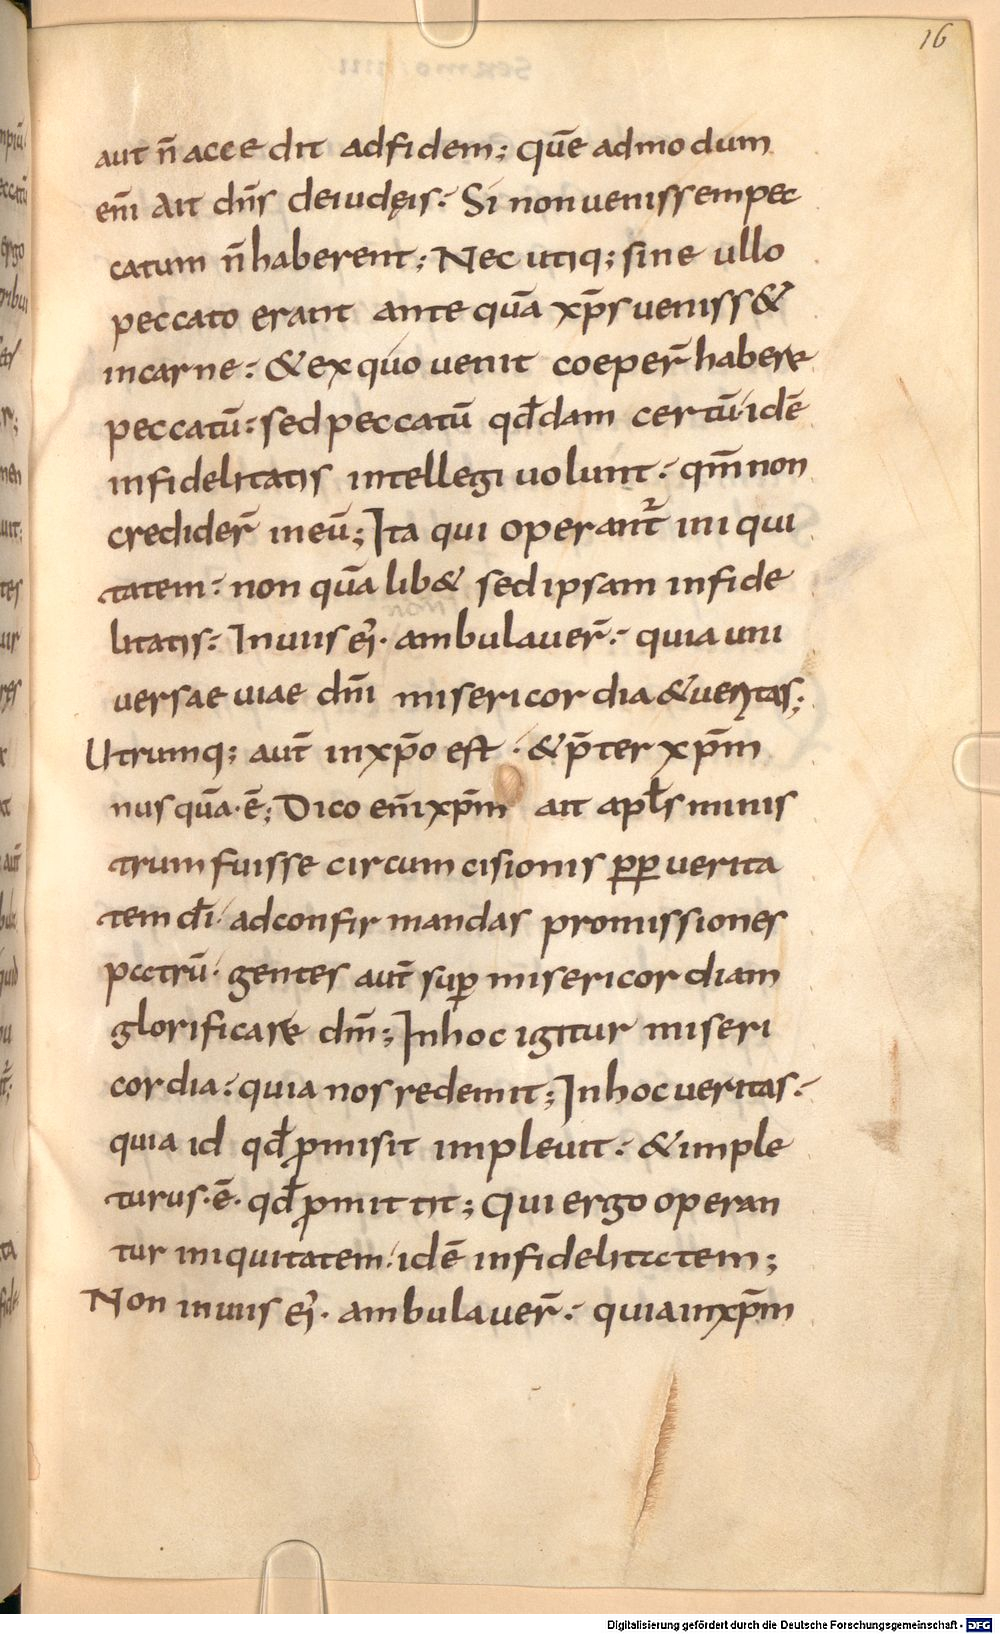 16
aut n̄ accedit adfidem; quē admodum
em̄ Ait dn̄s deiudęis: Si nonuenissempec
catum n̄haberent; Nec utiq; sine ullo
peccato erant ante quā xp̄s uenisset
incarne: &exquo uenit coeper̄ habere
peccatū: sedpeccatū qđdam certū: idē
infidelitatis intellegi uolunt: qm̄non
credider̄ ineū; Ita qui operant̄ ini qui
tatem: non quālib& sedipsam infide
litatis: Inuiis ei᷒· ambulauer̄: quia uni
uersae uiae dn̄i misericordia &ueritas;
Utrumq; aut̄ inxp̄o est · &p̄ter xp̄m
nusquā·ē; Dico em̄ xp̄m ait apłs minis
trumfuisse circumcisionis ꝓꝑ uerita
tem dī· adconfirmandas promissiones
patrū· gentes aut̄ suꝑ misericordiam
glorificare dm̄; Inhoc igitur miseri
cordia: quia nos redemit; Inhocueritas:
quia id qđ ꝓmisit impleuit: &imple
turus·ē· qđ ꝓmittit; Qui ergo operan
tur iniquitatem: idē infidelitatem;
Non inuiis ei᷒· ambulauer̄: quiainxp̄m
Digitalisierung gefördert durch die Deutsche Forschungsgemeinschaft - DFG